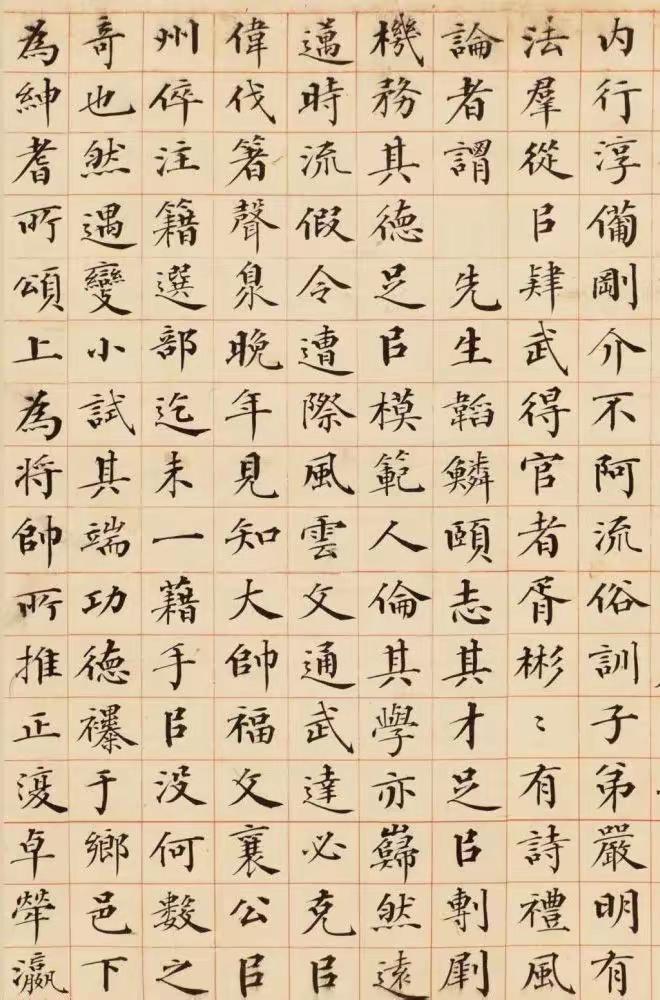 内行淳備剛介不阿流俗訓子弟嚴明有
法羣從㠯肆武得官者胥彬〻有詩禮風
論者謂 先生韜鱗頤志其才足㠯剸
機務其德足㠯模範人倫其學亦巋然遠
邁時流假令遭際風雲文通武達必克㠯
偉伐箸聲臮晚年見知大帥福文襄公㠯
州倅注籍選部迄未一藉手㠯没何數之
奇也然遇變小試其端功德襮于鄉邑下
為紳耆所頌上為将帥所推正復卓犖瀛